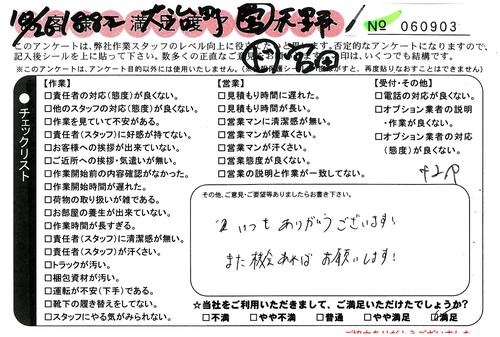 満足度
№ 060903
このアンケートは、弊社作業スタッフのレベル向上に役立て
否定的なアンケートになりますので、
記入後シールを上に貼って下さい。数多くの正直なご意見
印は、いくつでも結構です。
※このアンケートは、アンケート目的以外には使用いたしません。
保護シール
がすと、再度貼りなおすことはできません)
チェックリスト
【作業】
□責任者の対応(態度)が良くない。
□他のスタッフの対応(態度)が良くない。
□作業を見ていて不安がある。
□責任者(スタッフ)に好感が持てない。
□お客様への挨拶が出来ていない。
□ご近所への挨拶・気遣いが無い。
□作業開始前の内容確認がなかった。
□作業開始時間が遅れた。
□荷物の取り扱いが雑である。
□お部屋の養生が出来ていない。
□作業時間が長すぎる。
□責任者(スタッフ)に清潔感が無い。
□責任者(スタッフ)が汗くさい。
□トラックが汚い。
□梱包資材が汚い。
□運転が不安(下手)である。
□靴下の履き替えをしてない。
□スタッフにやる気がみられない。
【営業】
□見積もり時間に遅れた。
□見積もり時間が長い。
□営業マンに清潔感が無い。
□営業マンが煙草くさい。
□営業マンが汗くさい。
□営業態度が良くない。
□営業の説明と作業が一致してない。
【受付・その他】
□電話の対応が良くない。
□オプション業者の説明
・作業が良くない。
□オプション業者の対応
(態度)が良くない。
その他、ご意見・ご要望等ありましたらお書き下さい。
いつも ありがとうございます!
また機会あれば お願いします!
☆当社をご利用いただきまして、ご満足いただけたでしょうか?
□不満 □やや不満 □普通 □やや満足 □満足